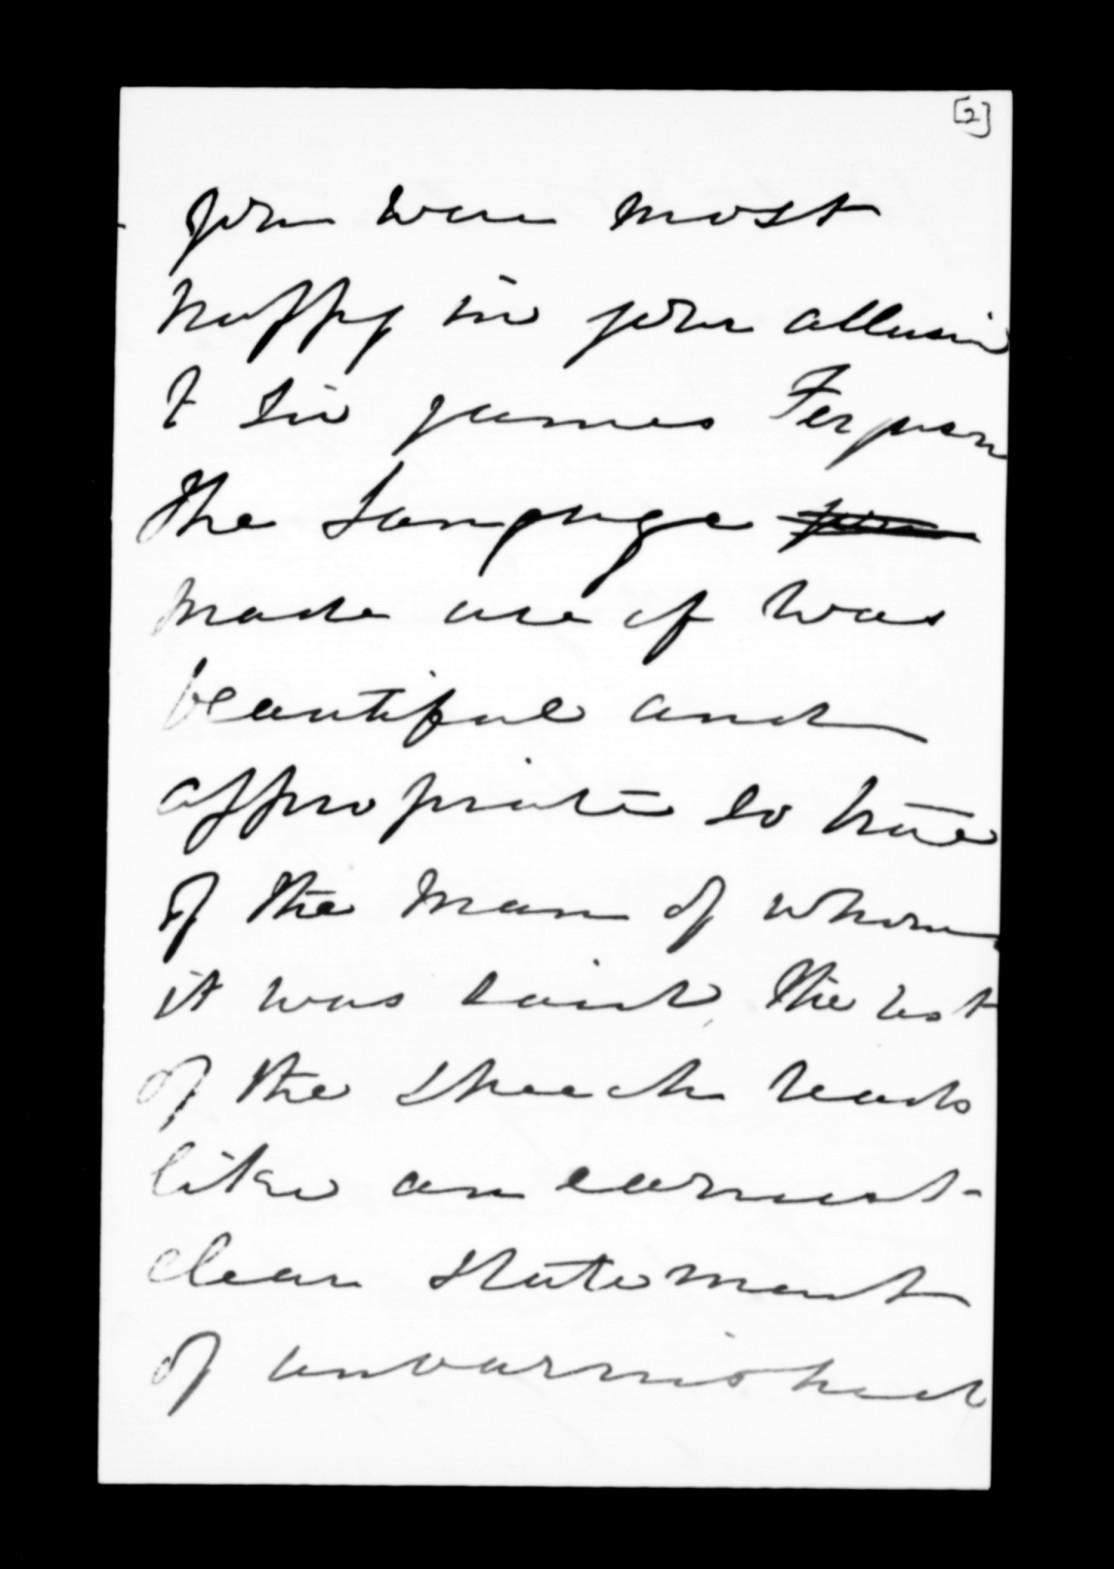 [2]
you were most
happy in your allusion
to Sir James Ferguson
The Language you
made use of was
beautiful and
appropriate so true
of the man of whom
it was said, The rest
of the speech reads
like an earnest-
clear statement
of unvarnished